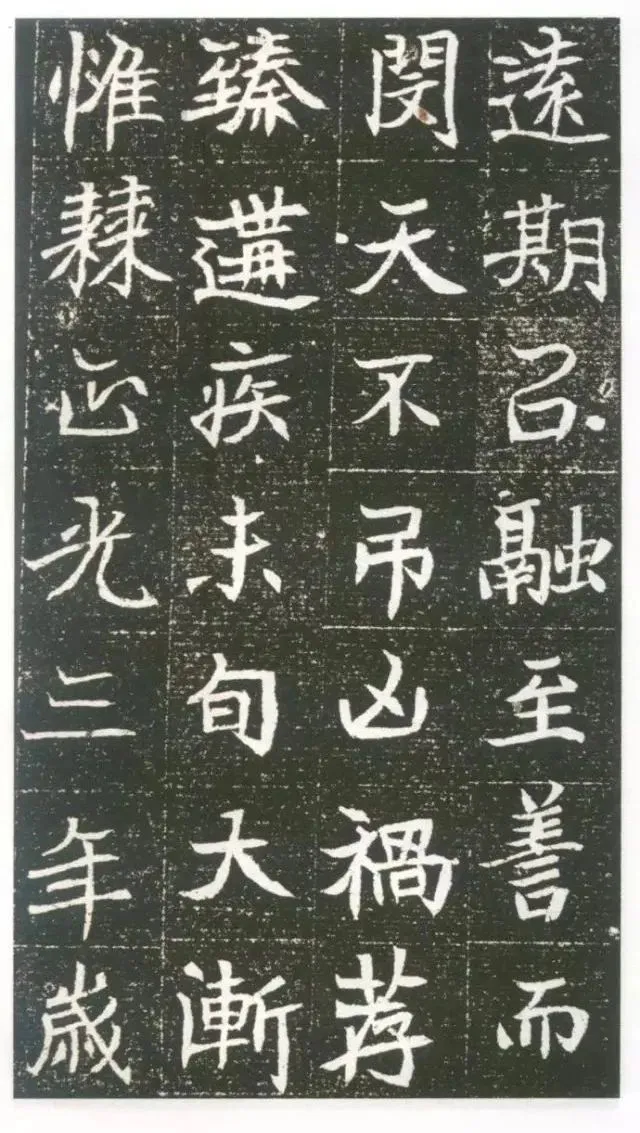 遠期㠯融至善而
閔天不吊凶禍荐
臻遘疾未旬大漸
惟棘正光三年歲